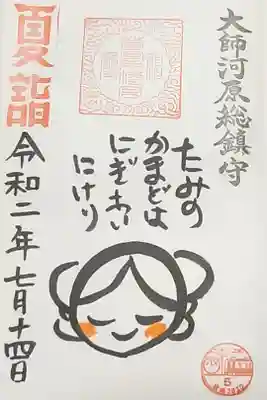 大師河原総鎮守
たみの
かまどは
にぎわい
にけり
夏詣
令和二年七月十四日
5